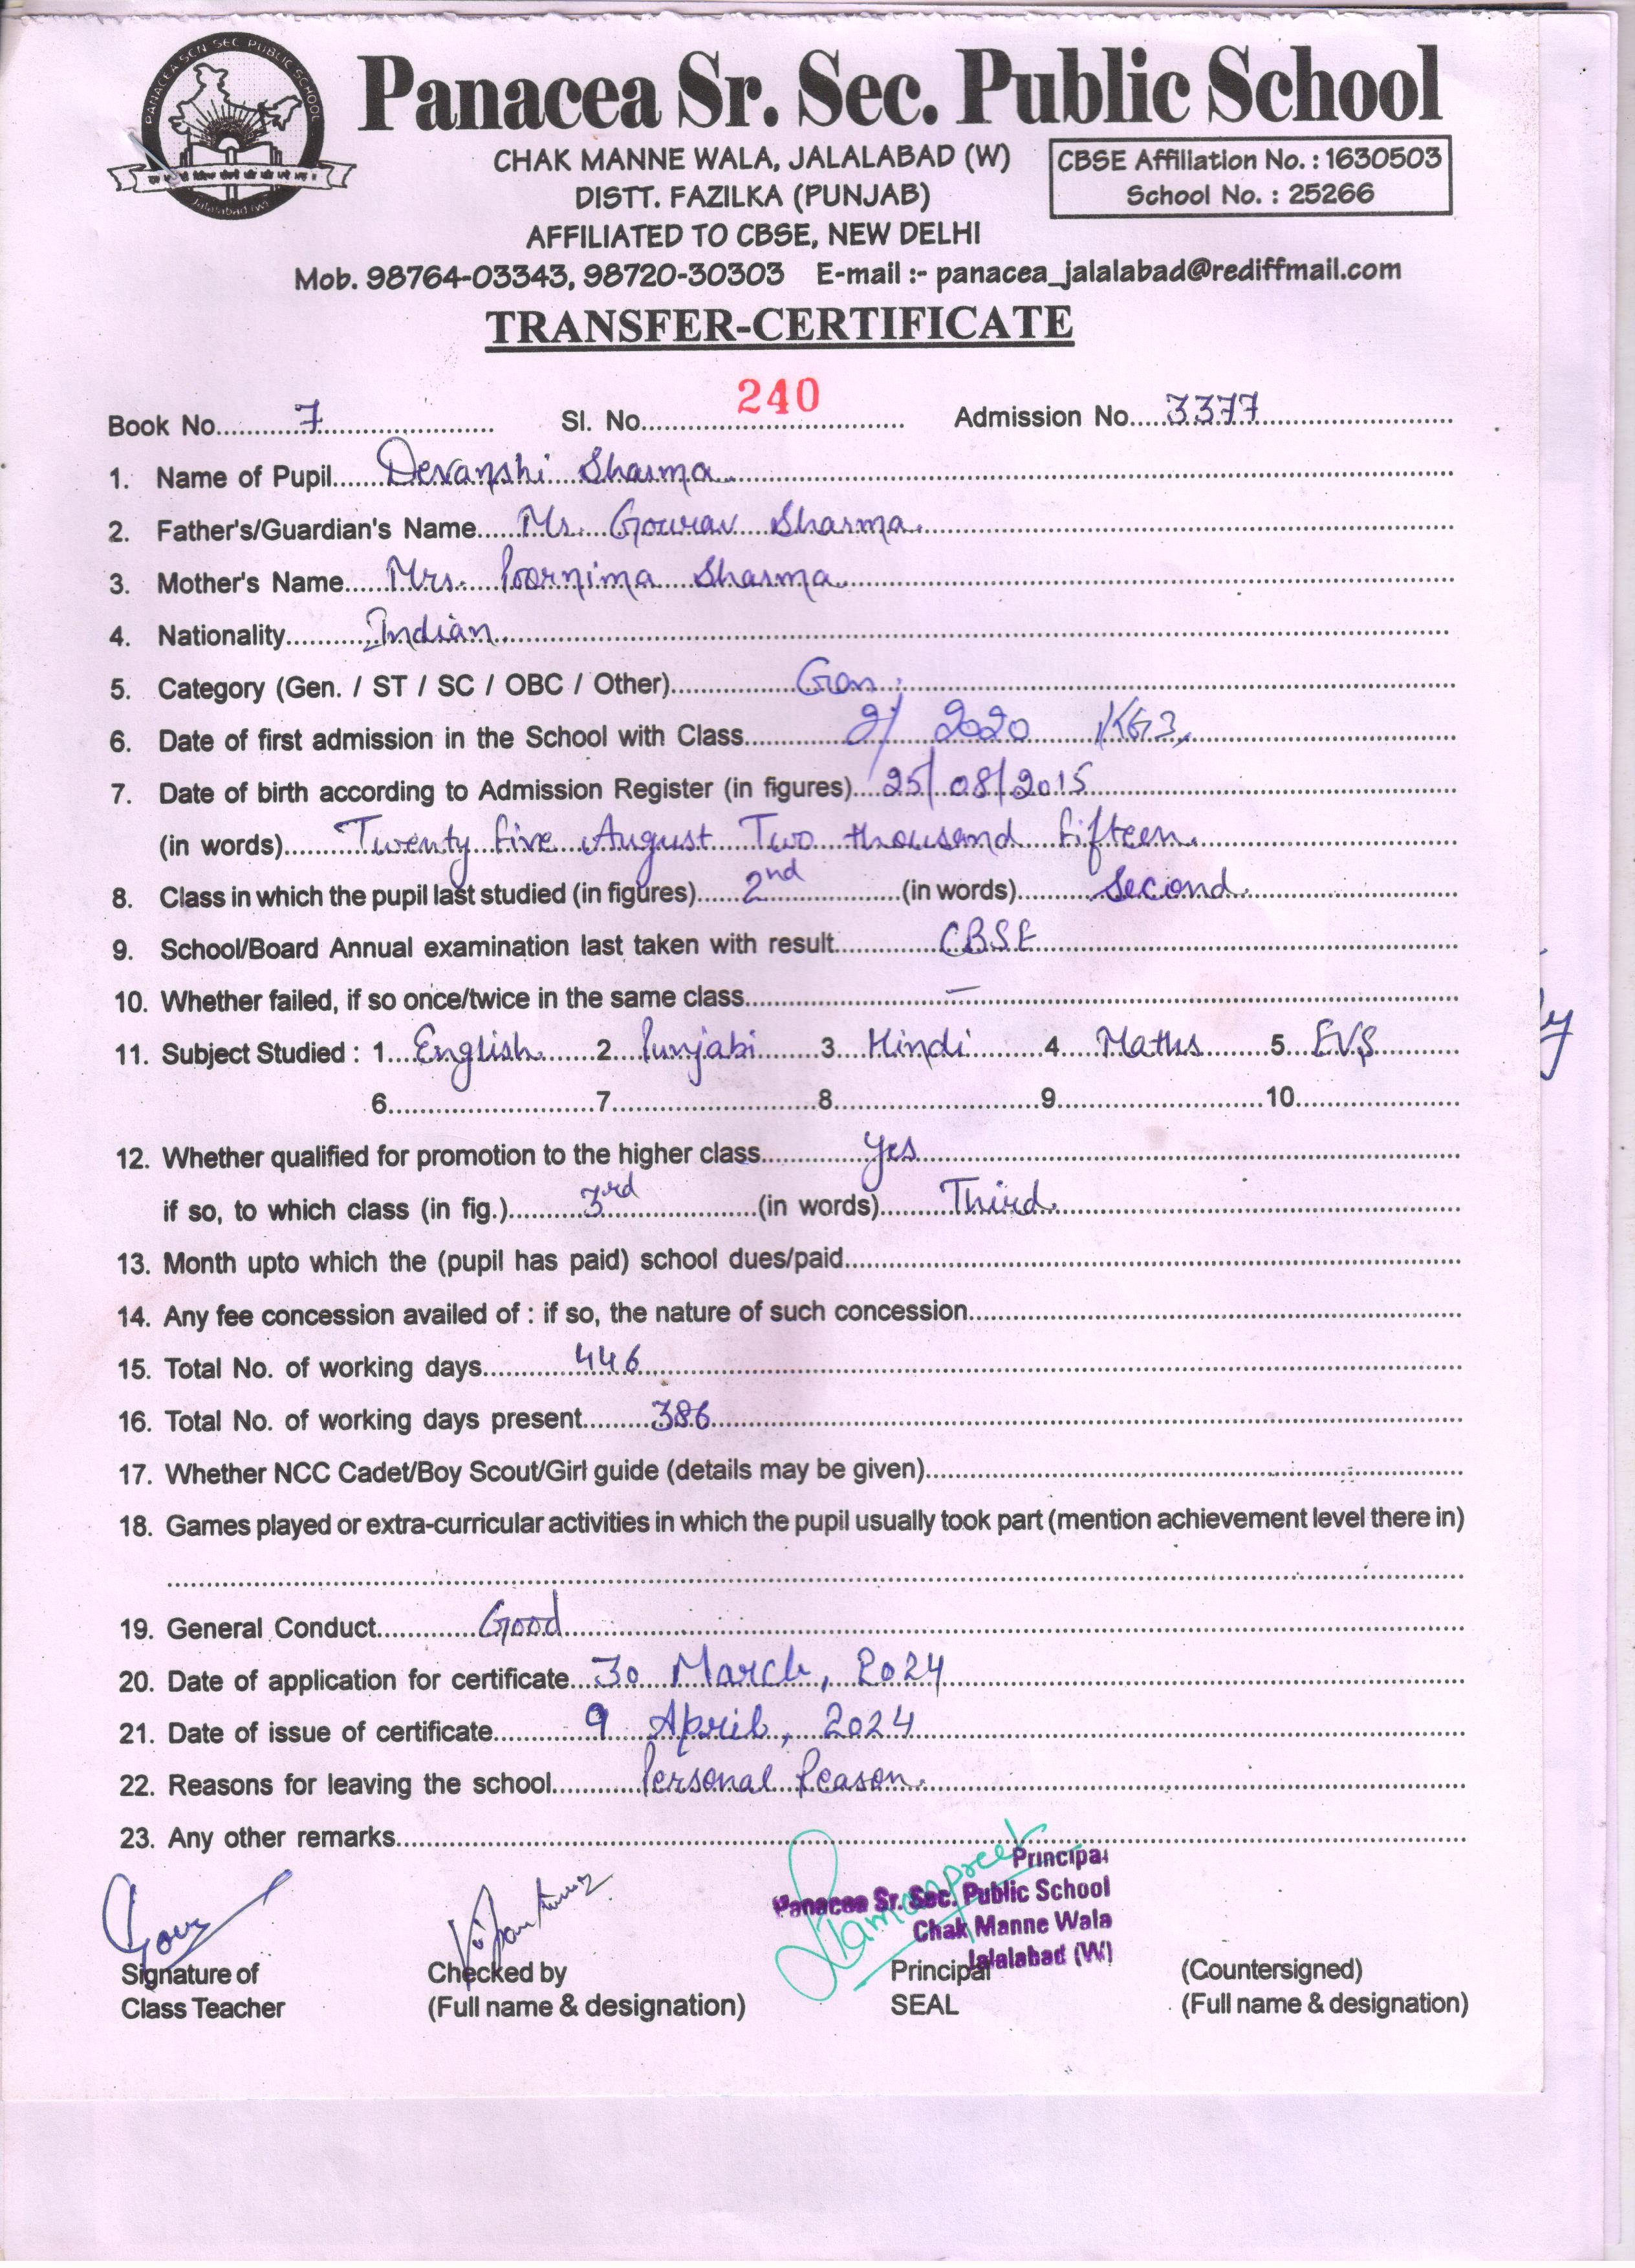 PANACEA SCN SEC PUBLIC SCHOOL
Jalalabad (W)
Panacea Sr. Sec. Public School
CHAK MANNE WALA, JALALABAD (W)
CBSE Affiliation No. : 1630503
School No. : 25266
DISTT. FAZILKA (PUNJAB)
AFFILIATED TO CBSE, NEW DELHI
Mob. 98764-03343, 98720-30303 E-mail :- panacea_jalalabad@rediffmail.com
TRANSFER-CERTIFICATE
Book No. 7 Sl. No. 240 Admission No. 3377
1. Name of Pupil Devanshi Sharma
2. Father's/Guardian's Name Mr. Gourav Sharma
3. Mother's Name Mrs. Poornima Sharma
4. Nationality Indian
5. Category (Gen. / ST / SC / OBC / Other) Gen.
6. Date of first admission in the School with Class 2020
7. Date of birth according to Admission Register (in figures) 25/08/2015
(in words) Twenty five August Two thousand fifteen
8. Class in which the pupil last studied (in figures) 2nd (in words) Second
9. School/Board Annual examination last taken with result CBSE
10. Whether failed, if so once/twice in the same class —
11. Subject Studied : 1 English 2 Punjabi 3 Hindi 4 Maths 5 EVS
6 7 8 9 10
12. Whether qualified for promotion to the higher class yes
if so, to which class (in fig.) 3rd (in words) Third
13. Month upto which the (pupil has paid) school dues/paid
14. Any fee concession availed of : if so, the nature of such concession
15. Total No. of working days 446
16. Total No. of working days present 386
17. Whether NCC Cadet/Boy Scout/Girl guide (details may be given)
18. Games played or extra-curricular activities in which the pupil usually took part (mention achievement level there in)
19. General Conduct Good
20. Date of application for certificate 30 March, 2024
21. Date of issue of certificate 9 April, 2024
22. Reasons for leaving the school Personal Reason
23. Any other remarks
Principal
Panacea Sr. Sec. Public School
Chak Manne Wala
Jalalabad (W)
Signature of
Class Teacher
Checked by
(Full name & designation)
Principal
SEAL
(Countersigned)
(Full name & designation)